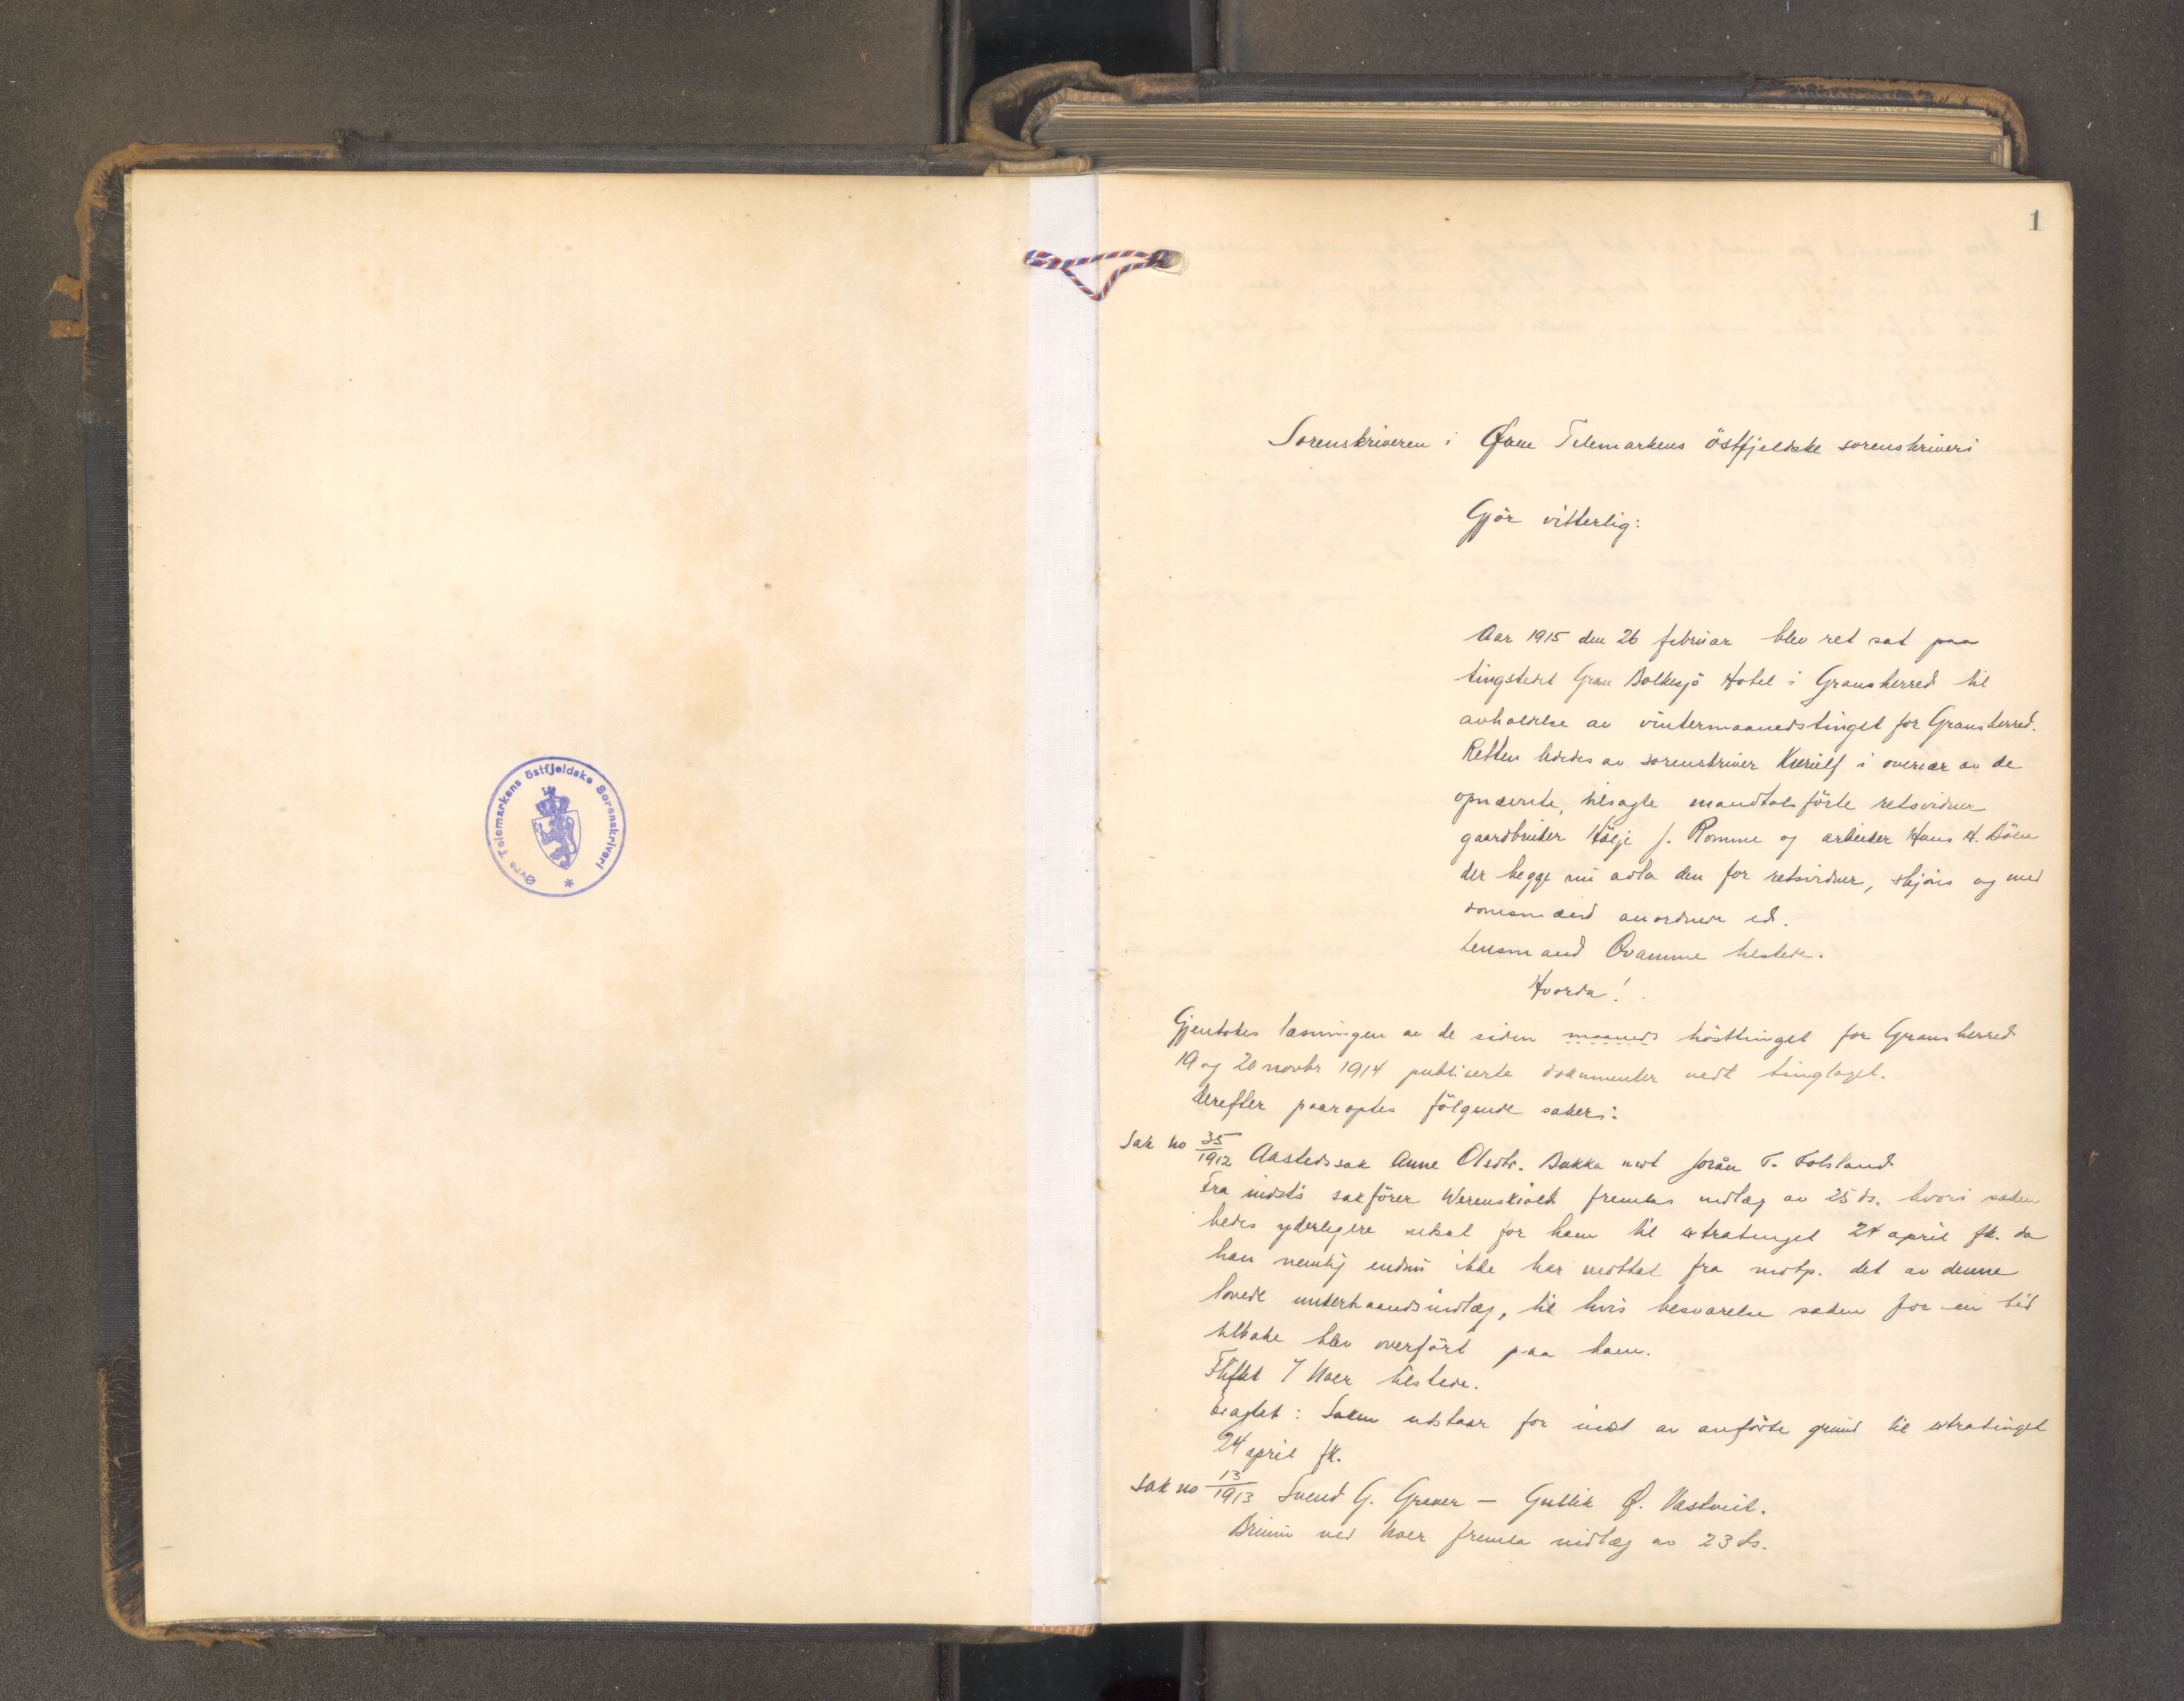 Øvre Telemarkens östfjeldske Sorenskriveri *
1
Sorenskriveren i Øvre Telemarkens östfjeldske sorenskriveri
Gjör vitterlig:
Aar 1915 den 26 februar blev ret sat paa
tingstedet Gran Bolkesjö Hotel i Gransherred til
avholdelse av vintermaanedstinget for Gransherred.
Retten lededes av sorenskriver Kierulf i overvær av de
opnævnte, tilsagte mandtalsförte retsvidner
gaardbruker J. Romme og arbeider Hans H. Böen
der begge nu avla den for retsvidner, skjöns og med
domsmænd anordnede ed.
Lensmand Qvamme tilstede.
Hvorda!
Gjentokes læsningen av de siden maaneds hösttinget for Gransherred
19 og 20 novbr 1914 publiserte dokumenter vedk tinglaget.
Derefter paaroptes fölgende saker:
Sak no 35/1912 Aastedssak Anne Olsdtr. Bakka mot Jorån T. Folsland
Fra indst's sakförer Werenskiold fremlas indlæg av 25 ds. hvori saken
bedes yderligere utsat for ham til extratinget 24 april fk. da
han nemlig endnu ikke har mottat fra motp. det av denne
lovede underhaandsindlæg, til hvis besvarelse saken for en tid
tilbake blev overfört paa ham.
Fliflet / Moer tilstede.
Eragtet: Saken utstaar for indst av anförte grund til extratinget
24 april fk.
Sak no 13/1913 Svend G. Graver – Gullik Ø. Vastveit.
ved Moer fremla indlæg av 23 ds.